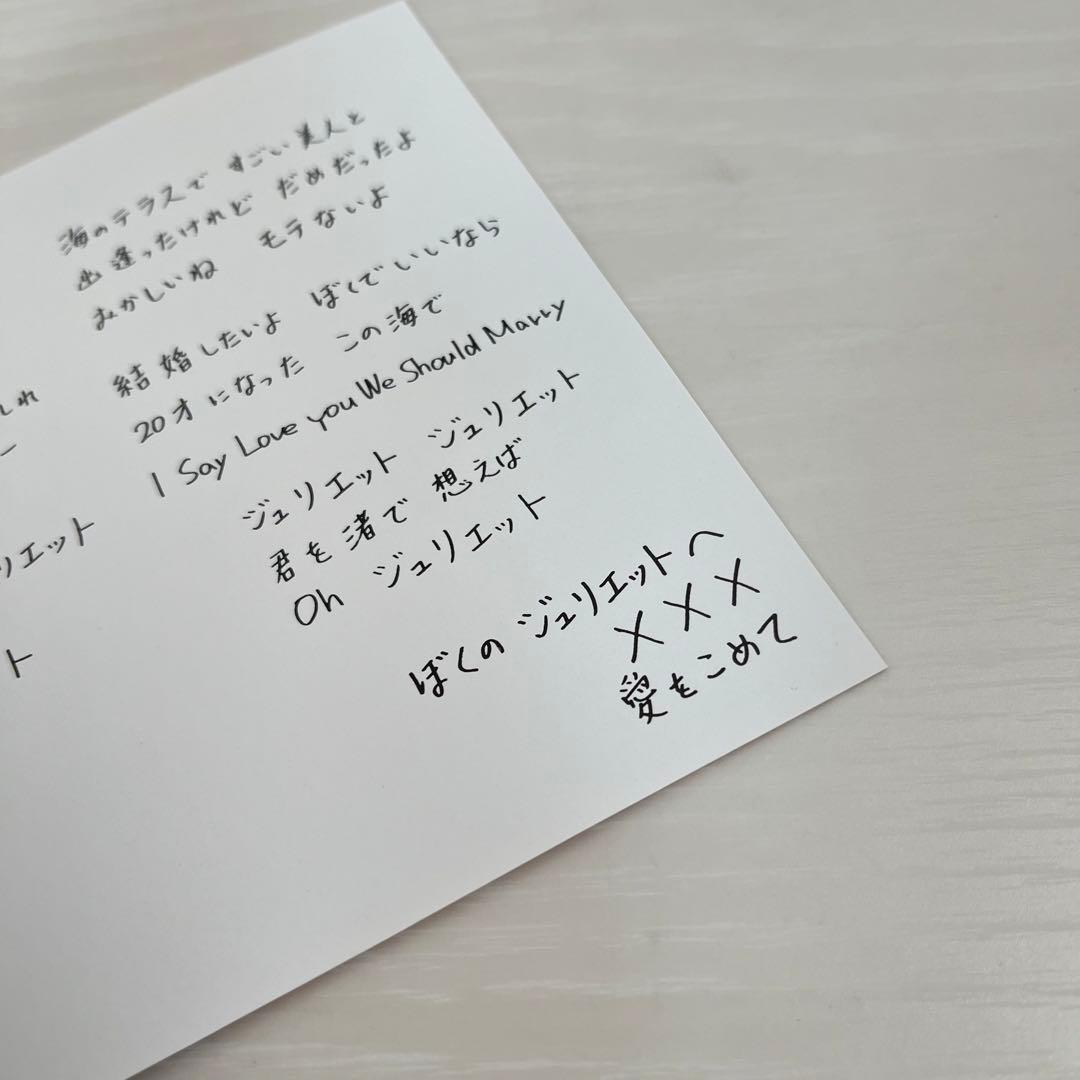 海のテラスで すごい美人と
出逢ったけれど だめだったよ
おかしいね モラないよ
結婚したいよ ぼくでいいなら
20才になった この海で
I Say Love you We Should Marry
ジュリエット ジュリエット
君を渚で 想えば
Oh ジュリエット
ぼくの ジュリエットへ
XXX
愛をこめて
しれ
ー
リエット
ト